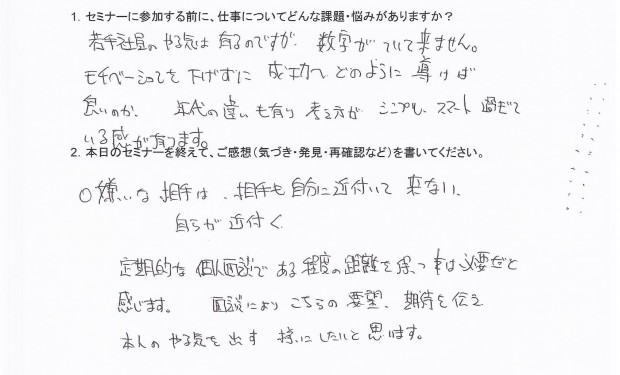 1. セミナーに参加する前に、仕事についてどんな課題・悩みがありますか？
若手社員のやる気は有るのですが、数字がついて来ません。
モチベーションを下げずに成功へどのように導けば
良いのか、年代の違いも有り考え方がシンプル、スマート過ぎて
いる感が有ります。
2. 本日のセミナーを終えて、ご感想（気づき・発見・再確認など）を書いてください。
○嫌いな相手は、相手も自分に近付いて来ない、
自らが近付く
定期的な個人面談である程度の距離を保つ事は必要だと
感じます。面談によりこちらの要望、期待を伝え
本人のやる気を出す様にしたいと思います。